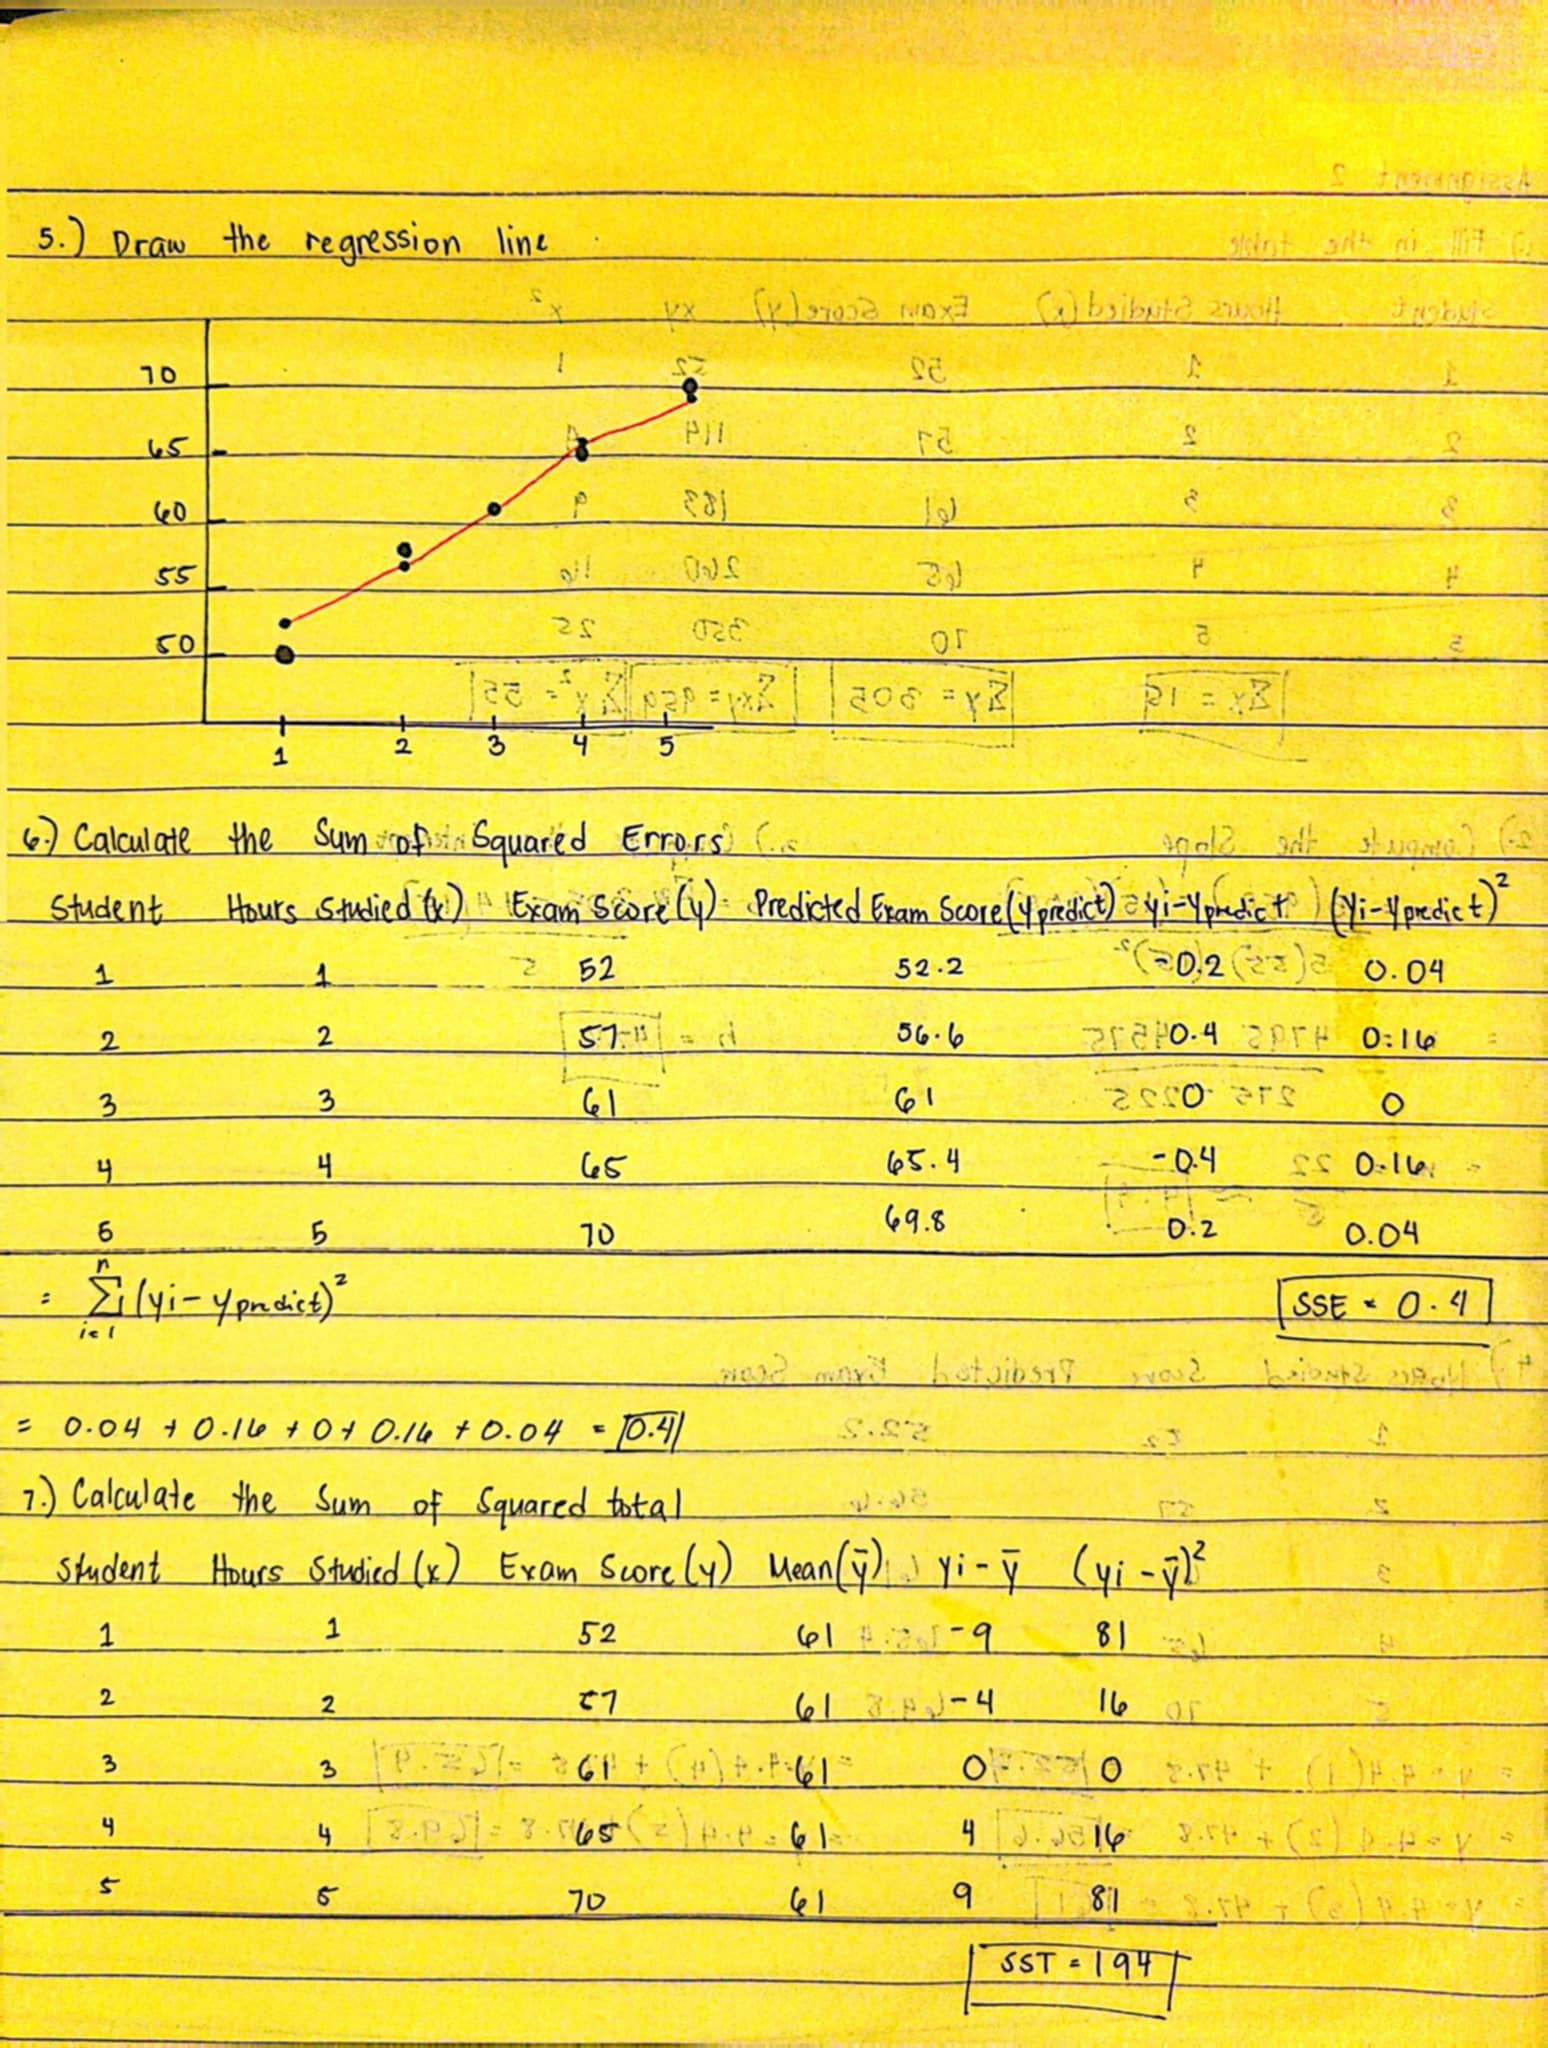 5.) Draw the regression line
70
65
60
55
50
1 2 3 4 5
6.) Calculate the Sum of Squared Errors
Student Hours Studied (x) Exam Score (y) Predicted Exam Score (y predict) yi-y predict (yi-y predict)²
1 1 52 52.2 -0.2 0.04
2 2 57 56.6 0.4 0.16
3 3 61 61 0 0
4 4 65 65.4 -0.4 0.16
5 5 70 69.8 0.2 0.04
= n Σ i=1 (yi - y predict)²
SSE = 0.4
= 0.04 + 0.16 + 0 + 0.16 + 0.04 = 0.4
7.) Calculate the Sum of Squared total
Student Hours Studied (x) Exam Score (y) Mean (ȳ) yi - ȳ (yi - ȳ)²
1 1 52 61 -9 81
2 2 57 61 -4 16
3 3 61 61 0 0
4 4 65 61 4 16
5 5 70 61 9 81
SST = 194